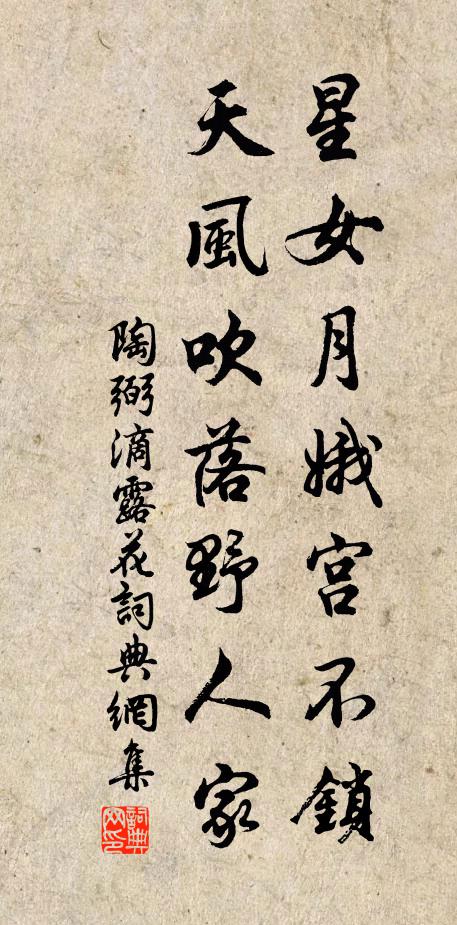 星女月娥宮不鎖
天風吹落野人家
陶弼滴露花詞典網集
詞典網印